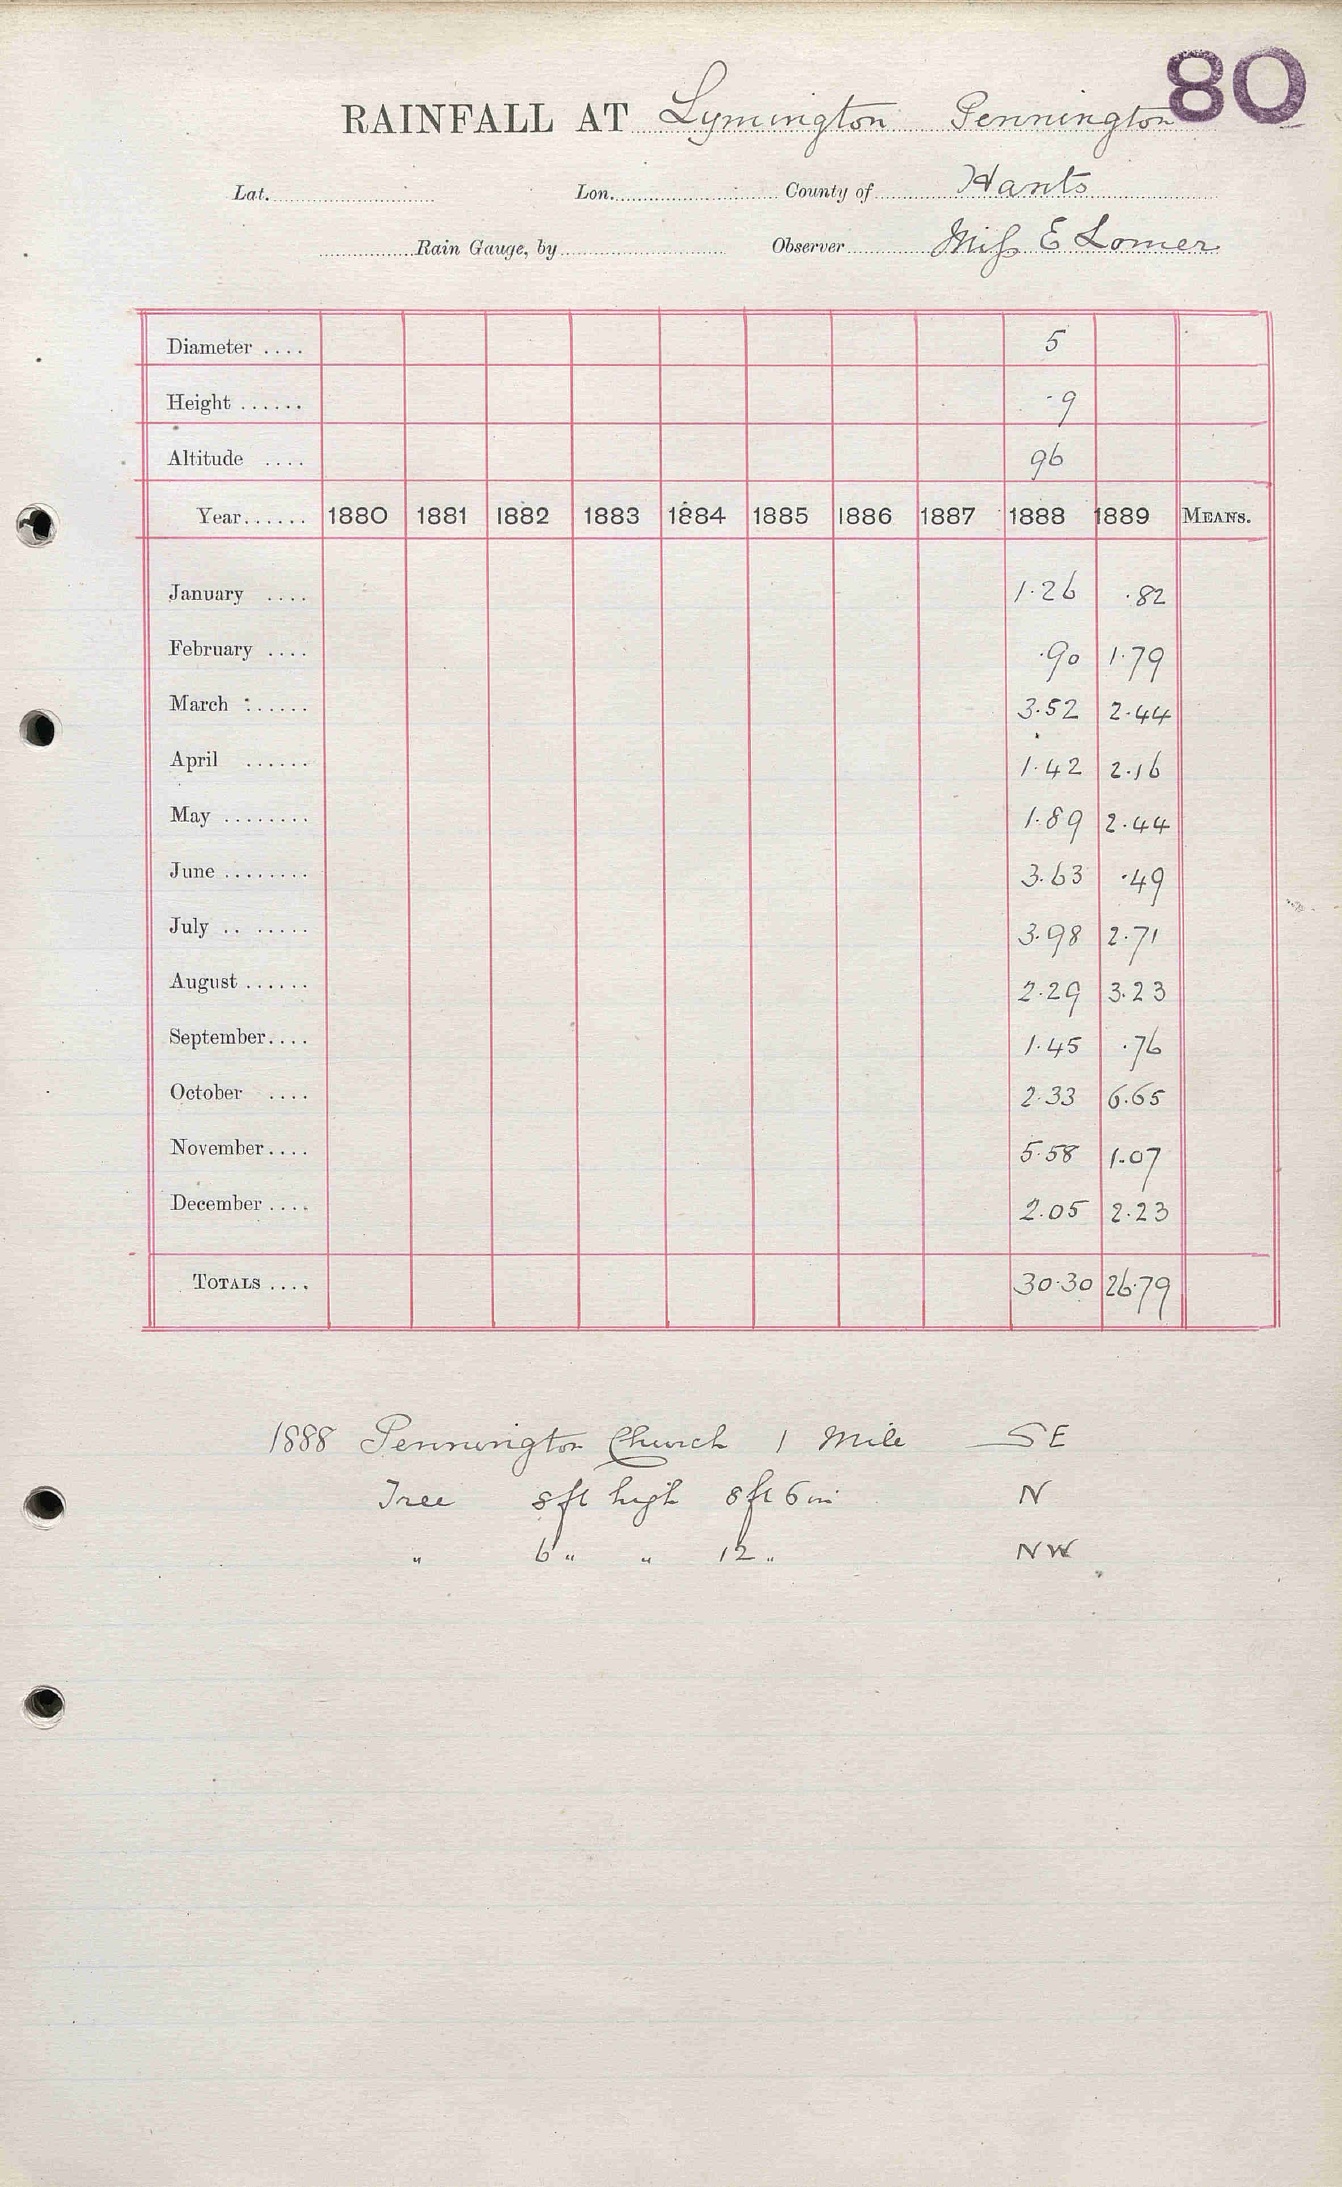 80
RAINFALL AT Lymington Pennington
Lat. Lon. County of Hants
Rain Gauge, by Observer Miss E Lomer
Diameter .... 5
Height ...... ·9
Altitude .... 96
Year...... 1880 1881 1882 1883 1884 1885 1886 1887 1888 1889 MEANS.
January .... 1·26 ·82
February .... ·90 1·79
March ...... 3·52 2·44
April ...... 1·42 2·16
May ........ 1·89 2·44
June ........ 3·63 ·49
July .. ..... 3·98 2·71
August ...... 2·29 3·23
September.... 1·45 ·76
October .... 2·33 6·65
November.... 5·58 1·07
December .... 2·05 2·23
TOTALS .... 30·30 26·79
1888 Pennington Church 1 Mile SE
Tree 8ft high 8ft 6in N
" 6 " " 12 " NW